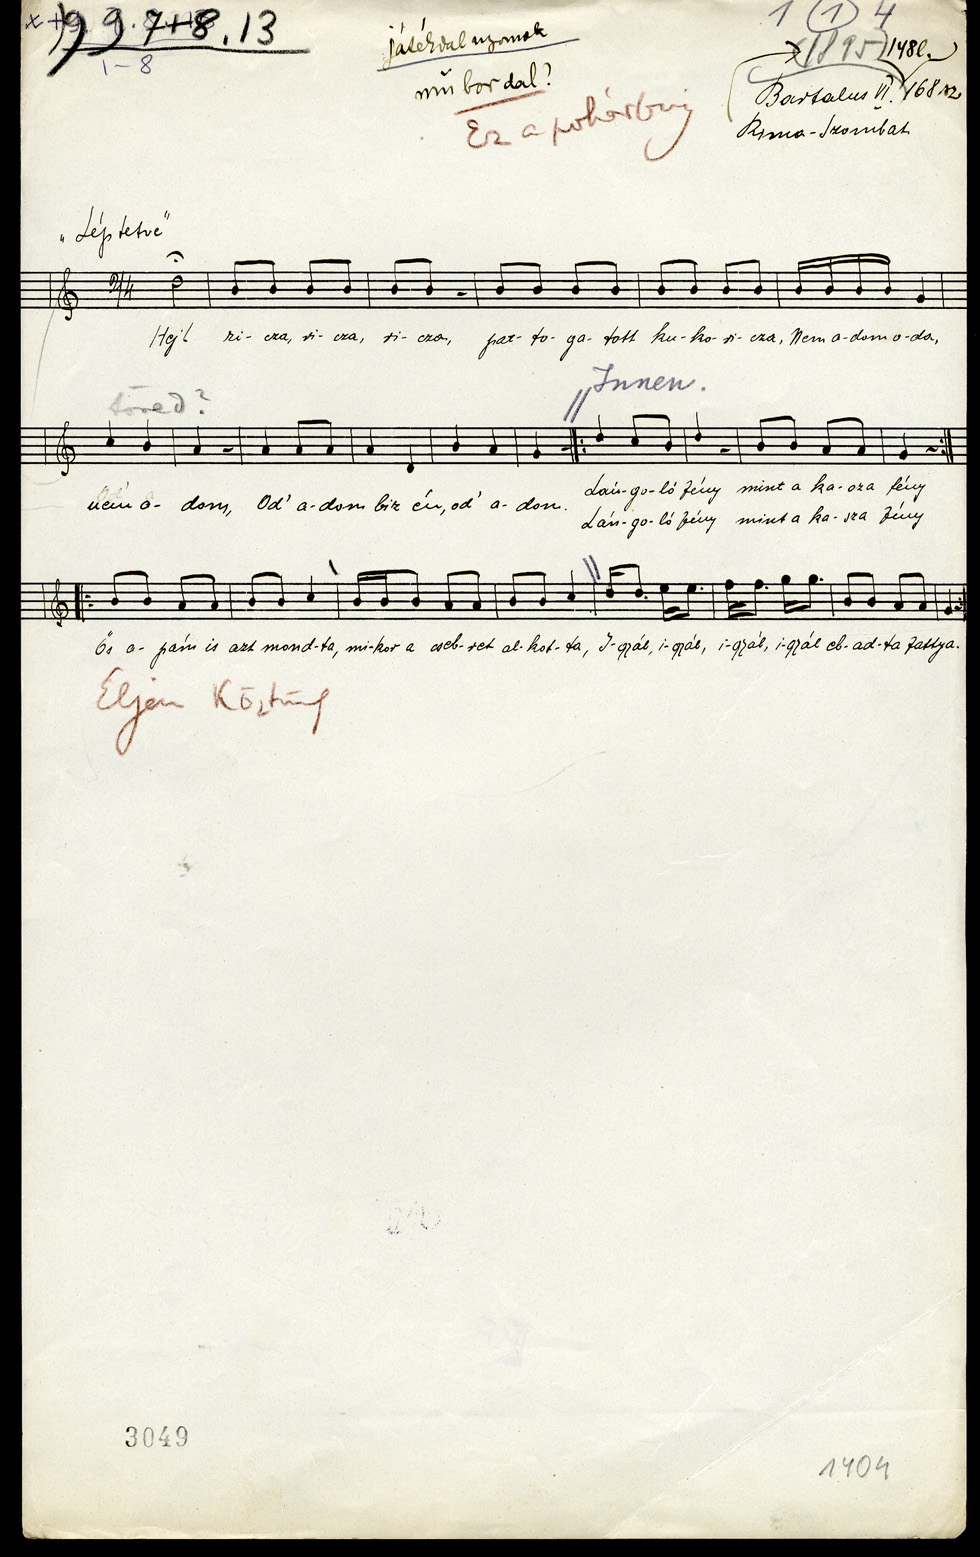 997+8.13
1-8
játékdal nyomok
műbordal?
Ez a pohárbúj
1 (1) 4
(1895) 148l.
Bartalus VI. 168 sz
Rima-Szombat
"Léptetve"
2/4
Hej! ri- cza, ri- cza, ri- cza, pat- to- ga- tott ku- ko- ri- cza, Nem a-dom o-da,
Innen.
nem a- dom, Od' a-dom biz én, od' a- dom.
Lán-go-ló fény mint a ka-sza fény
Lán-go-ló fény mint a ka-sza fény
Ős a- pám is azt mond-ta, mi-kor a cseb-ret al-kot-ta, I-gyál, i-gyál, i-gyál, i-gyál eb-ad-ta fattya.
Éljen
3049
1404